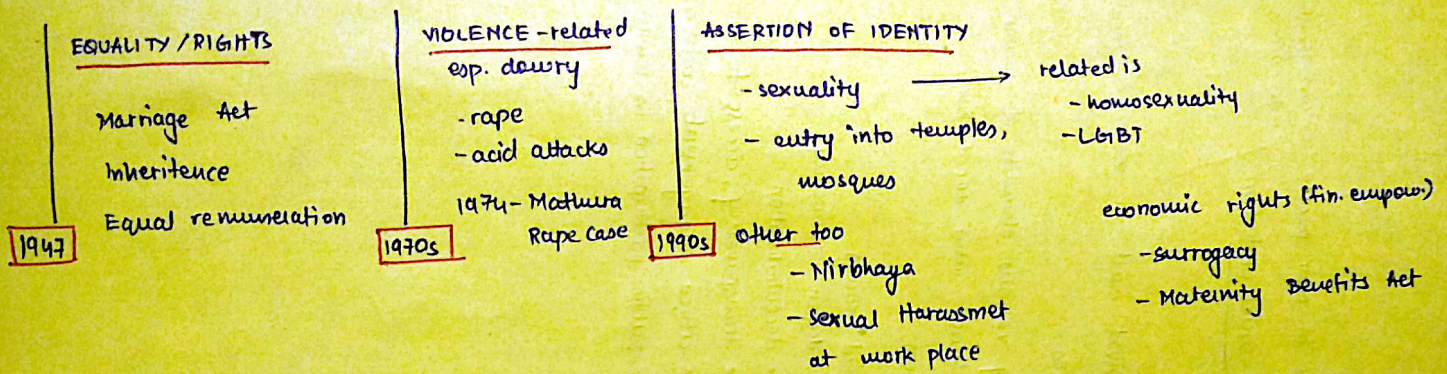 EQUALITY / RIGHTS
Marriage Act
Inheritence
Equal remuneration
1947
VIOLENCE - related
esp. dowry
- rape
- acid attacks
1974 - Mathura
Rape case
1970s
ASSERTION OF IDENTITY
- sexuality
- entry into temples,
mosques
1990s
other too
- Nirbhaya
- Sexual Harassmet
at work place
related is
- homosexuality
- LGBT
economic rights (fin. empow.)
- surrogacy
- Maternity Benefits Act